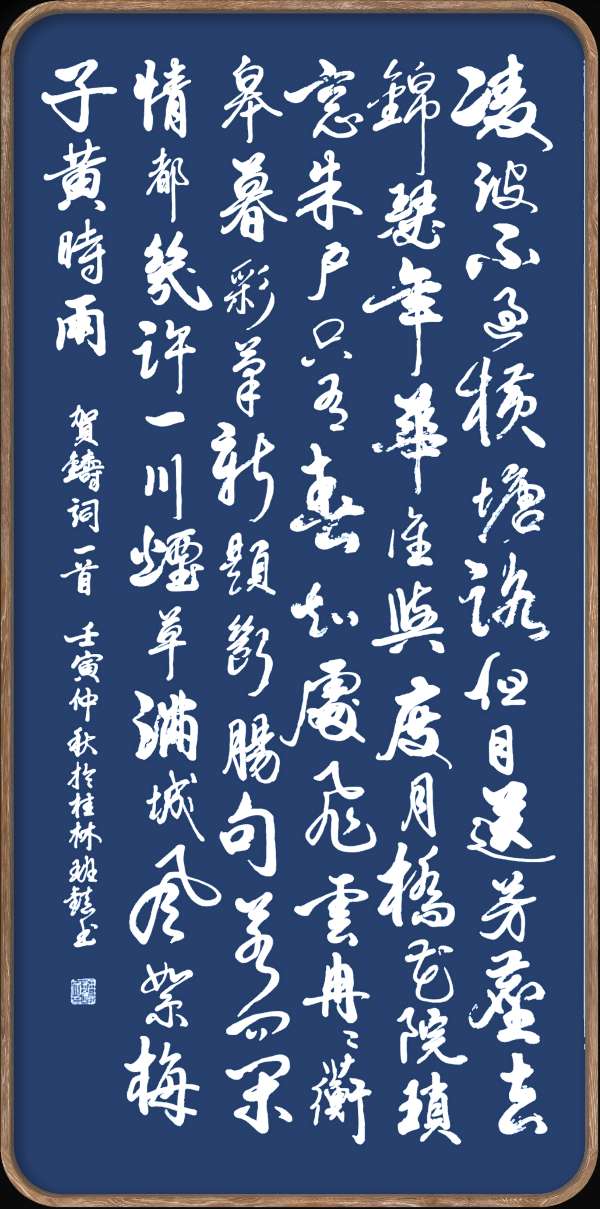 凌波不過橫塘路但目送芳塵去
錦瑟年華誰與度月橋花院瑣
窓朱戶只有春知處飛雲冉〻蘅
皋暮彩筆新題斷腸句若問閑
情都幾許一川煙草滿城風絮梅
子黃時雨
賀鑄詞一首 壬寅仲秋於桂林班書